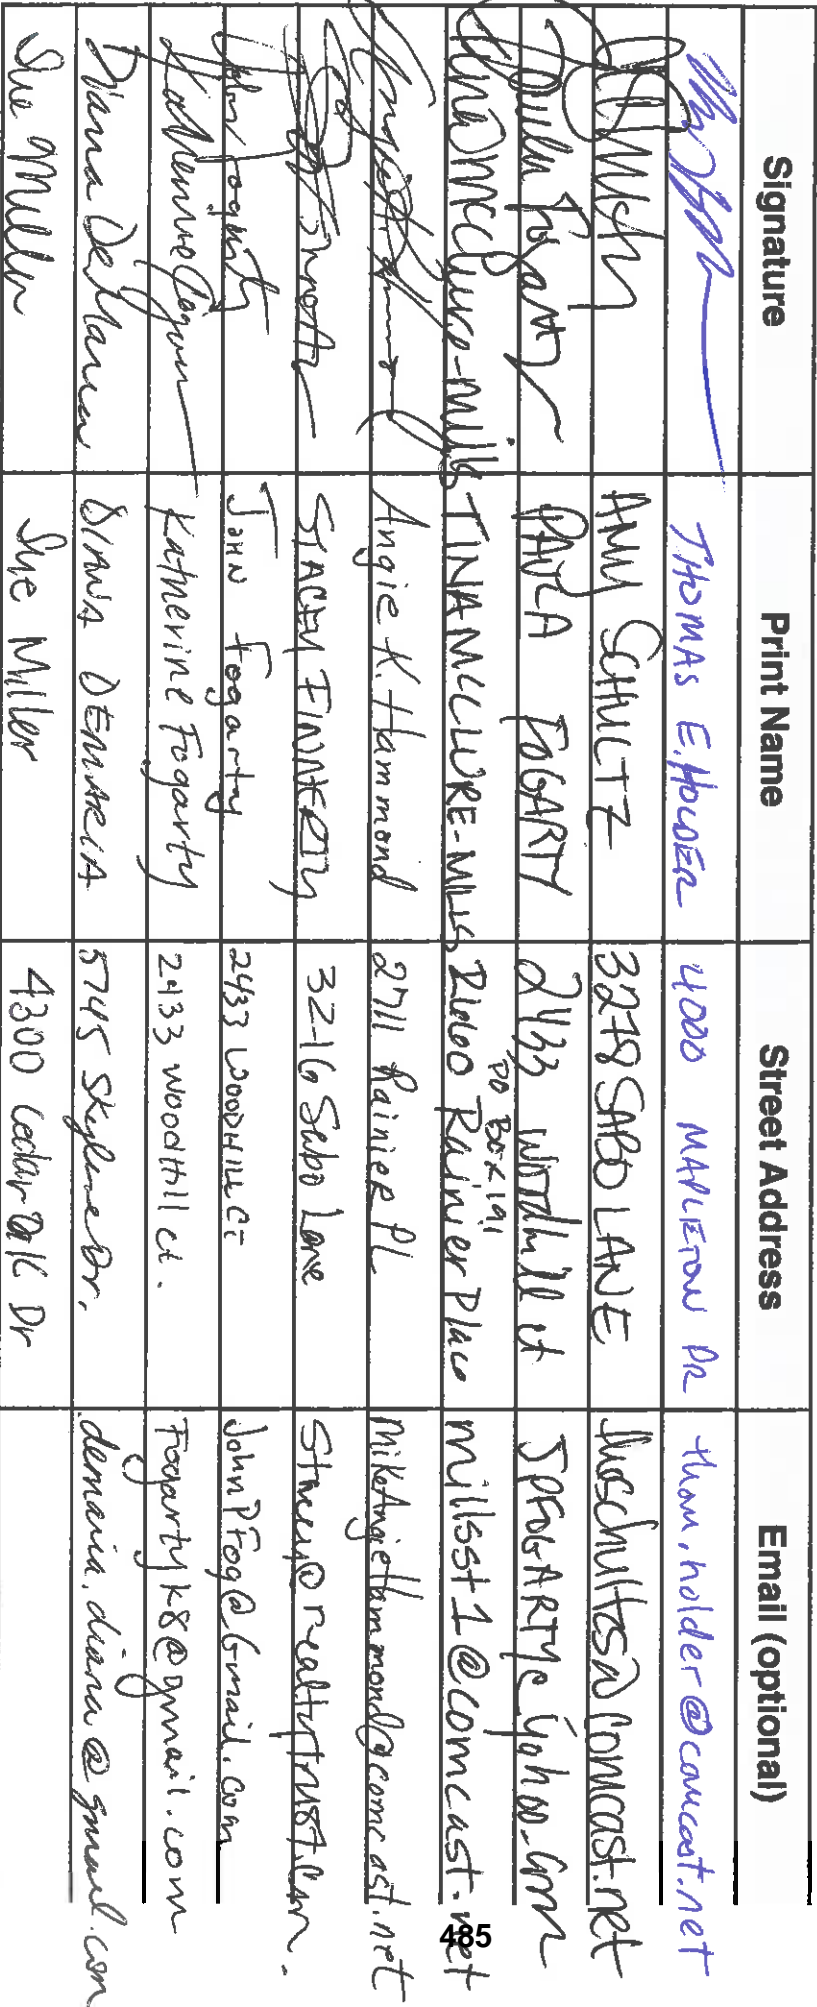 Signature Print Name Street Address Email (optional)
THOMAS E. HOLDER 4000 MAPLETON DR thom.holder@comcast.net
AMY SCHULTZ 3278 SABO LANE @comcast.net
Paula Fogarty PAULA FOGARTY 2433 Woodhill ct JPFOGARTY@yahoo.com
PO Box 191
Tina McClure-Mills TINA MCCLURE-MILLS Rainier Place millsst1@comcast.net
Angie K. Hammond 2711 Rainier PL MikeAngieHammond@comcast.net
STACEY FINNERTY 3216 Sabo Lane Stacey@realtytrust.com.
John Fogarty JOHN Fogarty 2433 WOODHILL CT JohnPFog@Gmail.com
Katherine Fogarty Katherine Fogarty 2433 woodhill ct. Fogartyk8@gmail.com
Diana DeMaria DIANA DEMARIA 5745 Skyline Dr. demaria.diana@gmail.com
Sue Miller Sue Miller 4300 Cedar Oak Dr
485